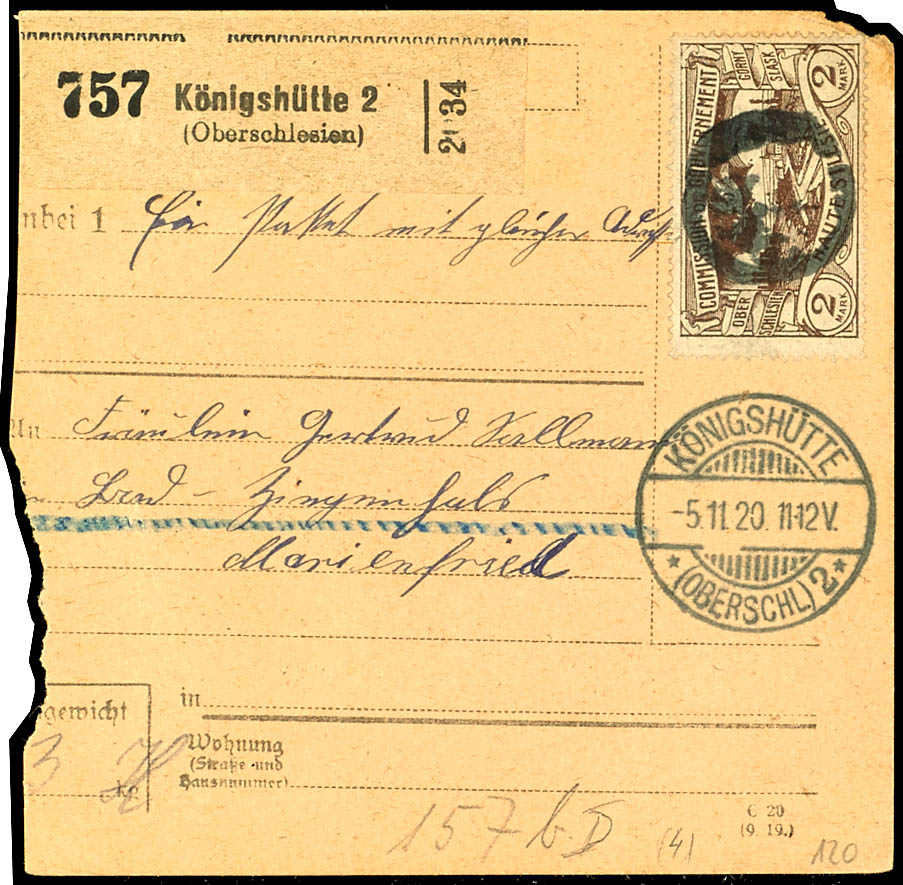 757 Königshütte 2
(Oberschlesien)
2 34
nbei 1 Ein Paket mit gleicher
An Fräulein Gertrud Kallmann
in Bad - Ziegenhals
Marienfried
COMMISSION DE GOUVERNEMENT
HAUTE SILÉSIE
GÓRNY ŚLĄSK
OBER SCHLESIEN
2 MARK
2 MARK
KÖNIGSHÜTTE
-5.11.20. 11-12V.
* (OBERSCHL.) 2 *
gewicht
3
kg
in
Wohnung
(Straße und
Hausnummer)
157 b II (4)
C 20
(9. 19.)
120